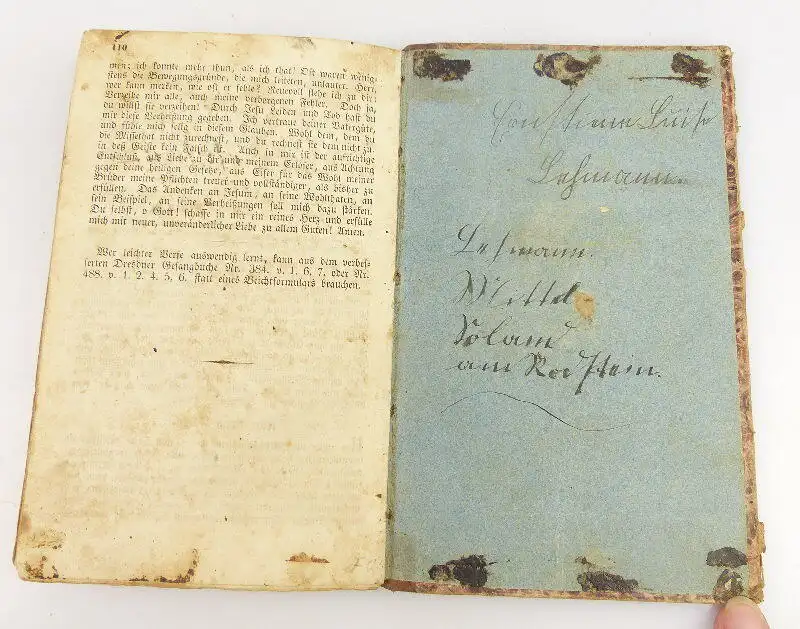 110
men; ich konnte mehr thun, als ich that! Oft waren wenig-
stens die Bewegungsgründe, die mich leiteten, unlauter. Herr,
wer kann merken, wie oft er fehle? Reuevoll flehe ich zu dir:
Verzeihe mir alle, auch meine verborgenen Fehler. Doch ja,
du willst sie verzeihen! Durch Jesu Leiden und Tod hast du
mir diese Verheißung gegeben. Ich vertraue deiner Vatergüte,
und fühle mich selig in diesem Glauben. Wohl dem, dem du
die Missethat nicht zurechnest, und du rechnest sie dem nicht zu,
in deß Geiste kein Falsch ist. Auch in mir ist der aufrichtige
Entschluß, aus Liebe zu dir und meinem Erlöser, aus Achtung
gegen deine heiligen Gesetze, aus Eifer für das Wohl meiner
Brüder meine Pflichten treuer und vollständiger, als bisher zu
erfüllen. Das Andenken an Jesum, an seine Wohlthaten, an
sein Beispiel, an seine Verheißungen soll mich dazu stärken.
Du selbst, o Gott! schaffe in mir ein reines Herz und erfülle
mich mit neuer, unveränderlicher Liebe zu allem Guten! Amen.
Wer leichter Verse auswendig lernt, kann aus dem verbes-
serten Dresdner Gesangbuche Nr. 384. v. 1. 6. 7. oder Nr.
488. v. 1. 2. 4. 5. 6. statt eines Beichtformulars brauchen.
Lehmann
Lehmann.
Mittel
Soland
am Rothstein.